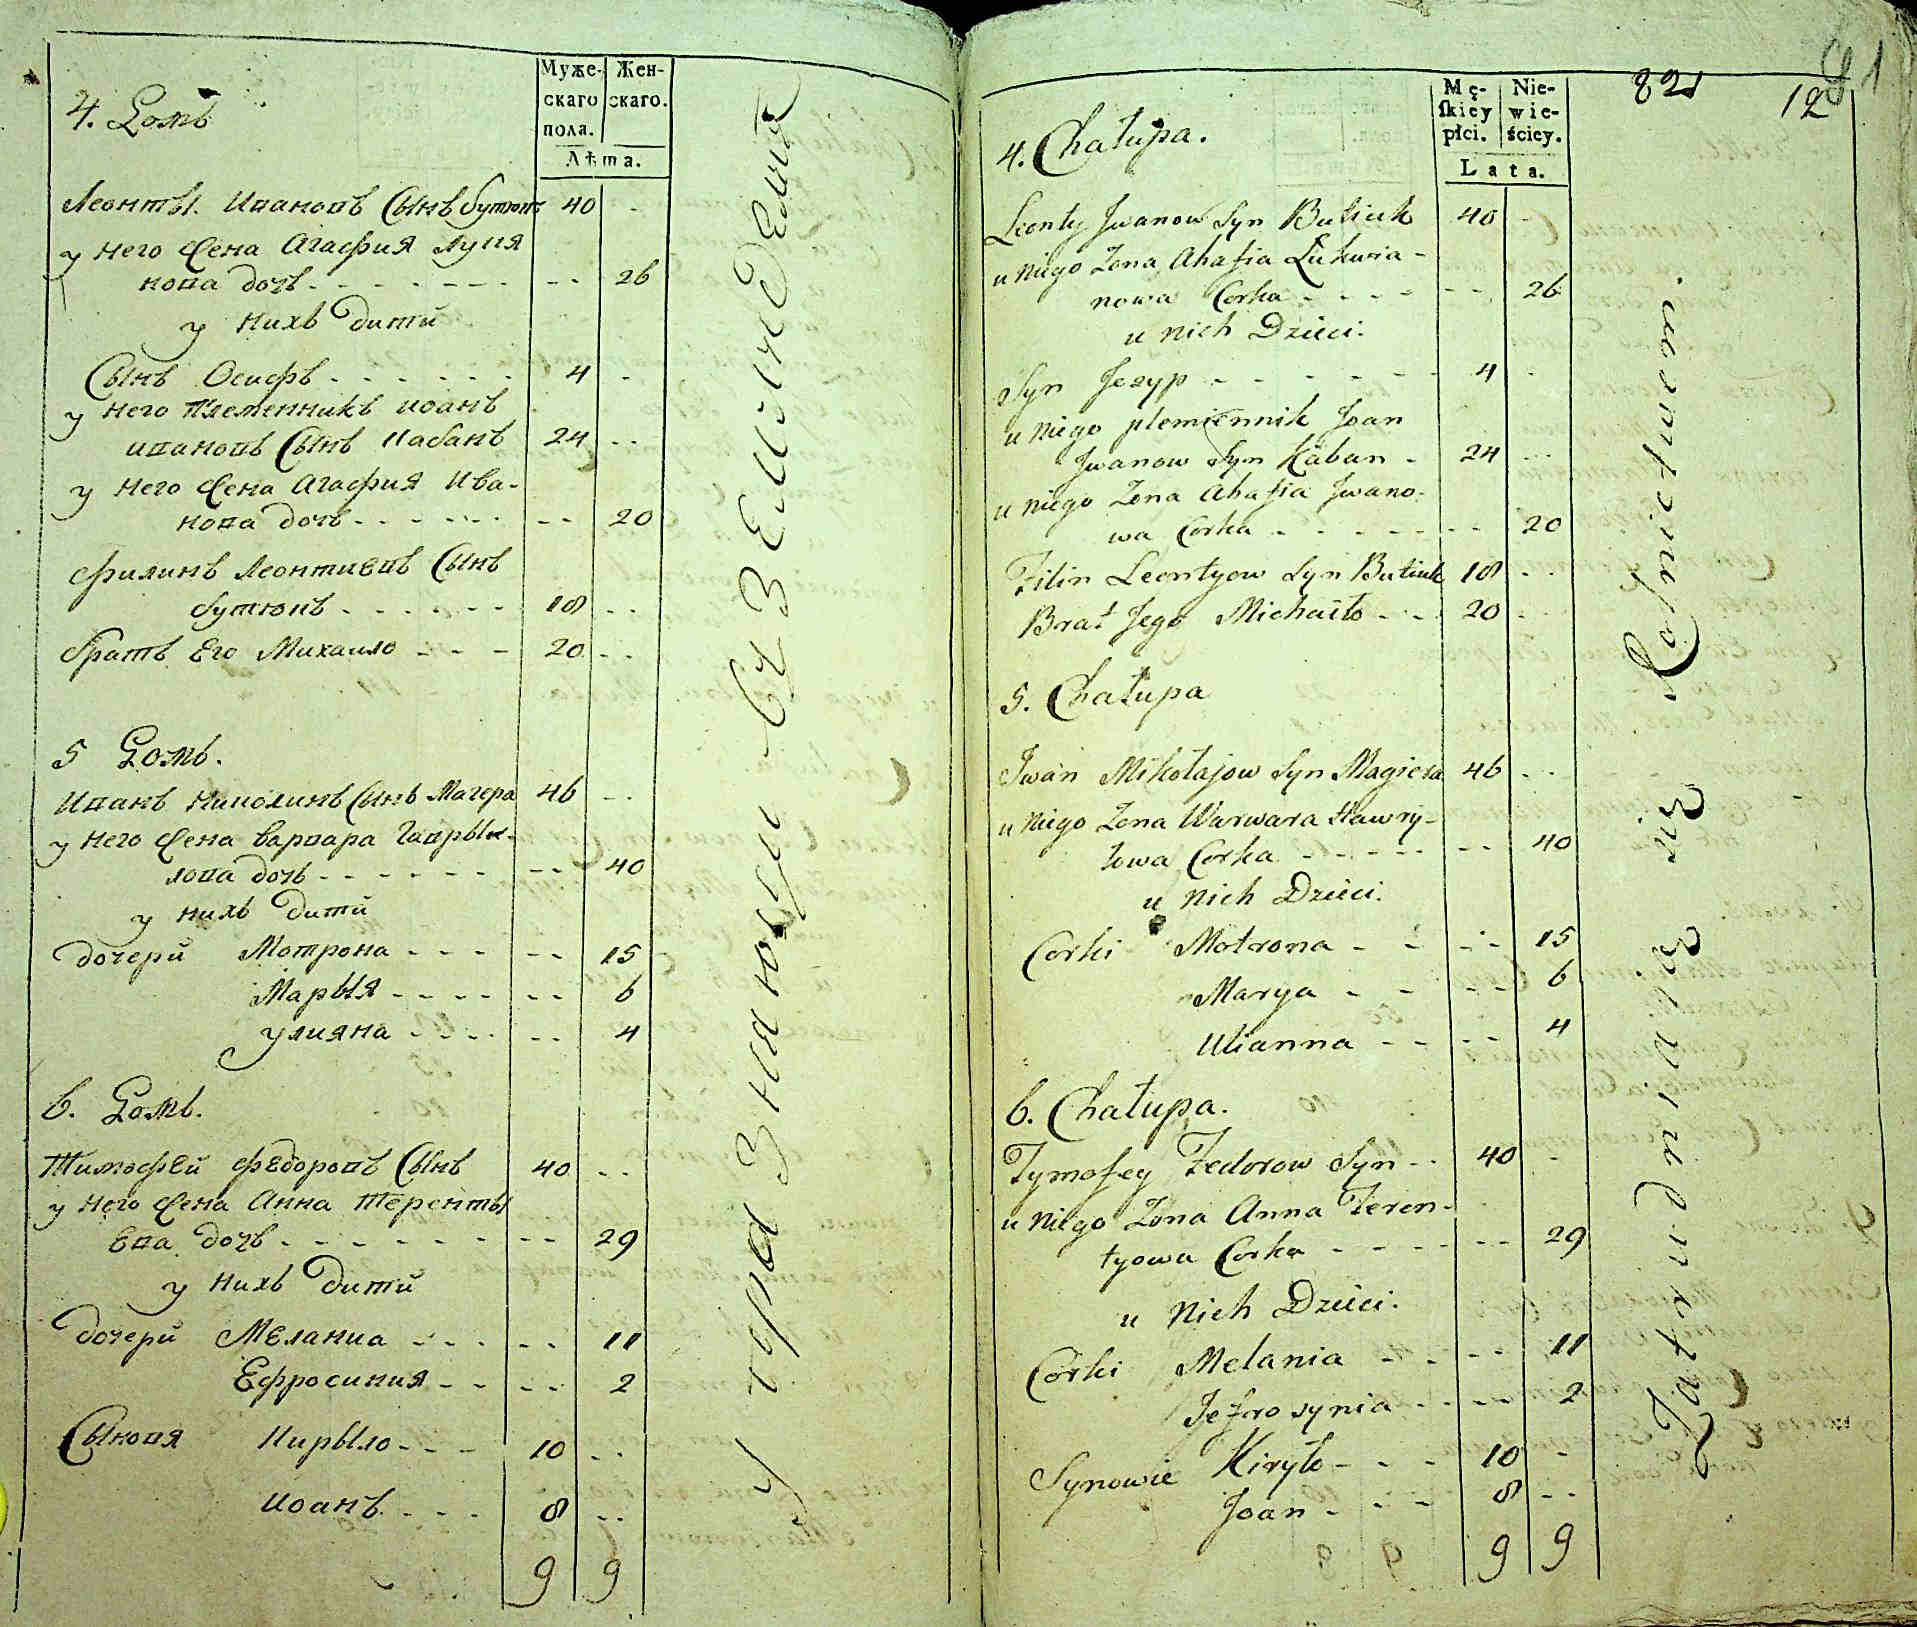 Муже-
скаго
пола.
Жен-
скаго.
Лѣта.
4. Домъ
Леонты Ивановъ Сынъ Бутюкъ 40 -
у него Жена Агафия Лукя
нова дочь - - - - - - - - - 26
у нихъ дити
Сынъ Осифъ - - - - - - 4 -
у него племенникъ иоанъ
ивановъ Сынъ Кабанъ 24 - -
у него Жена Агафия Ива-
нова дочь - - - - - - - - 20
Филинъ Леонтиевъ Сынъ
бутюкъ - - - - - - 18 - -
братъ Его Михаило - - - 20 - -
5 Домъ.
Иванъ Николинъ Сынъ Магера 46 - -
у него Жена варвара Гаврыи-
лова дочь - - - - - - - - 40
у нихъ дити
дочери Мотрона - - - - - - 15
Марыя - - - - - - 6
улияна - - - - - - 4
6. Домъ.
Тимофей Федоровъ Сынъ 40 - -
у него Жена Анна Теренты
ева дочь - - - - - - - - - 29
у нихъ дити
дочери Мелания - - - - - - 11
Ефросиния - - - - - 2
Сыновя Кирыло - - - 10 - -
Иоанъ - - - - 8 - -
9 9
Mę-
ſkiey
płci.
Nie-
wie-
ściey.
Lata.
821
12
4. Chałupa.
Leonty Jwanow Syn Butiuk 40 -
u niego Zona Ahafia Łukwia-
nowa Corka - - - - - - 26
u nich Dzieci.
Syn Jezyp - - - - - - - 4 -
u niego plemiennik Joan
Jwanow Syn Kaban - 24 - -
u niego Zona Ahafia Jwano-
wa Corka - - - - - - - 20
Filin Leontyow Syn Butiuk 18 - -
Brat Jego Michaiło - - - 20 - -
5. Chałupa
Jwan Mikołajow Syn Magiera 46 - -
u niego Zona Warwara Hawry-
łowa Corka - - - - - - - 40
u nich Dzieci.
Corki Motrona - - - - 15
Marya - - - - 6
Ulianna - - - - 4
6. Chałupa.
Tymofey Fedorow Syn - - 40 -
u niego Zona Anna Teren-
tyowa Corka - - - - - - 29
u nich Dzieci.
Corki Melania - - - - 11
Jefrosynia - - - - 2
Synowie Kiryło - - - 10 -
Joan - - - 8 - -
9 9